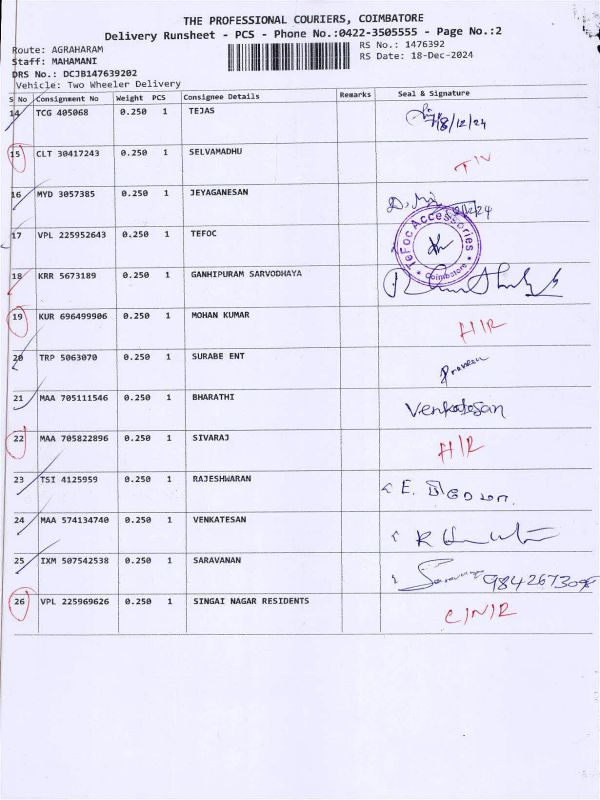 THE PROFESSIONAL COURIERS, COIMBATORE
Delivery Runsheet - PCS - Phone No.:0422-3505555 - Page No.:2
Route: AGRAHARAM RS No.: 1476392
Staff: MAHAMANI RS Date: 18-Dec-2024
DRS No.: DCJB147639202
Vehicle: Two Wheeler Delivery
S No Consignment No Weight PCS Consignee Details Remarks Seal & Signature
14 TCG 405068 0.250 1 TEJAS 18/12/24
15 CLT 30417243 0.250 1 SELVAMADHU
16 MYD 3057385 0.250 1 JEYAGANESAN
17 VPL 225952643 0.250 1 TEFOC TeFoc Accessories * Coimbatore *
18 KRR 5673189 0.250 1 GANHIPURAM SARVODHAYA
19 KUR 696499906 0.250 1 MOHAN KUMAR H/R
20 TRP 5063070 0.250 1 SURABE ENT Praveen
21 MAA 705111546 0.250 1 BHARATHI Venkatesan
22 MAA 705822896 0.250 1 SIVARAJ H/R
23 TSI 4125959 0.250 1 RAJESHWARAN E.
24 MAA 574134740 0.250 1 VENKATESAN
25 IXM 507542538 0.250 1 SARAVANAN
26 VPL 225969626 0.250 1 SINGAI NAGAR RESIDENTS C/N/R